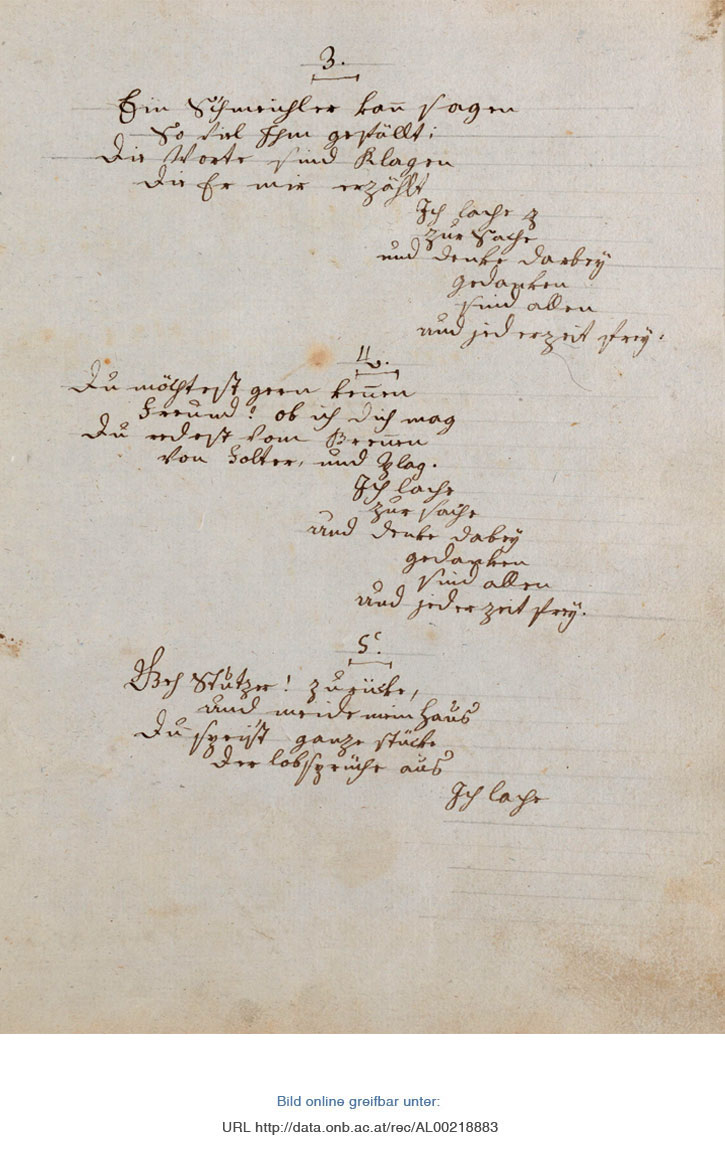 3.
Ein Schmeichler kan̄ sagen
So viel Ihm gefällt;
Die Worte sind Klagen
Die Er mir erzählt
Ich lache
zur Sache
und denke darbey
gedanken
sind allen
und jederzeit frey.
4.
Du möchtest gern ken̄en
Freund! ob ich dich mag
Du redest vom Bren̄en
von Folter, und Plag.
Ich lache
zur sache
und denke dabey
gedanken
sind allen
und jederzeit frey.
5.
Geh Stutzer! zurücke,
und meide mein Haus
Du speijst ganze stücke
der lobsprüche aus
Ich lache
Bild online greifbar unter:
URL http://data.onb.ac.at/rec/AL00218883